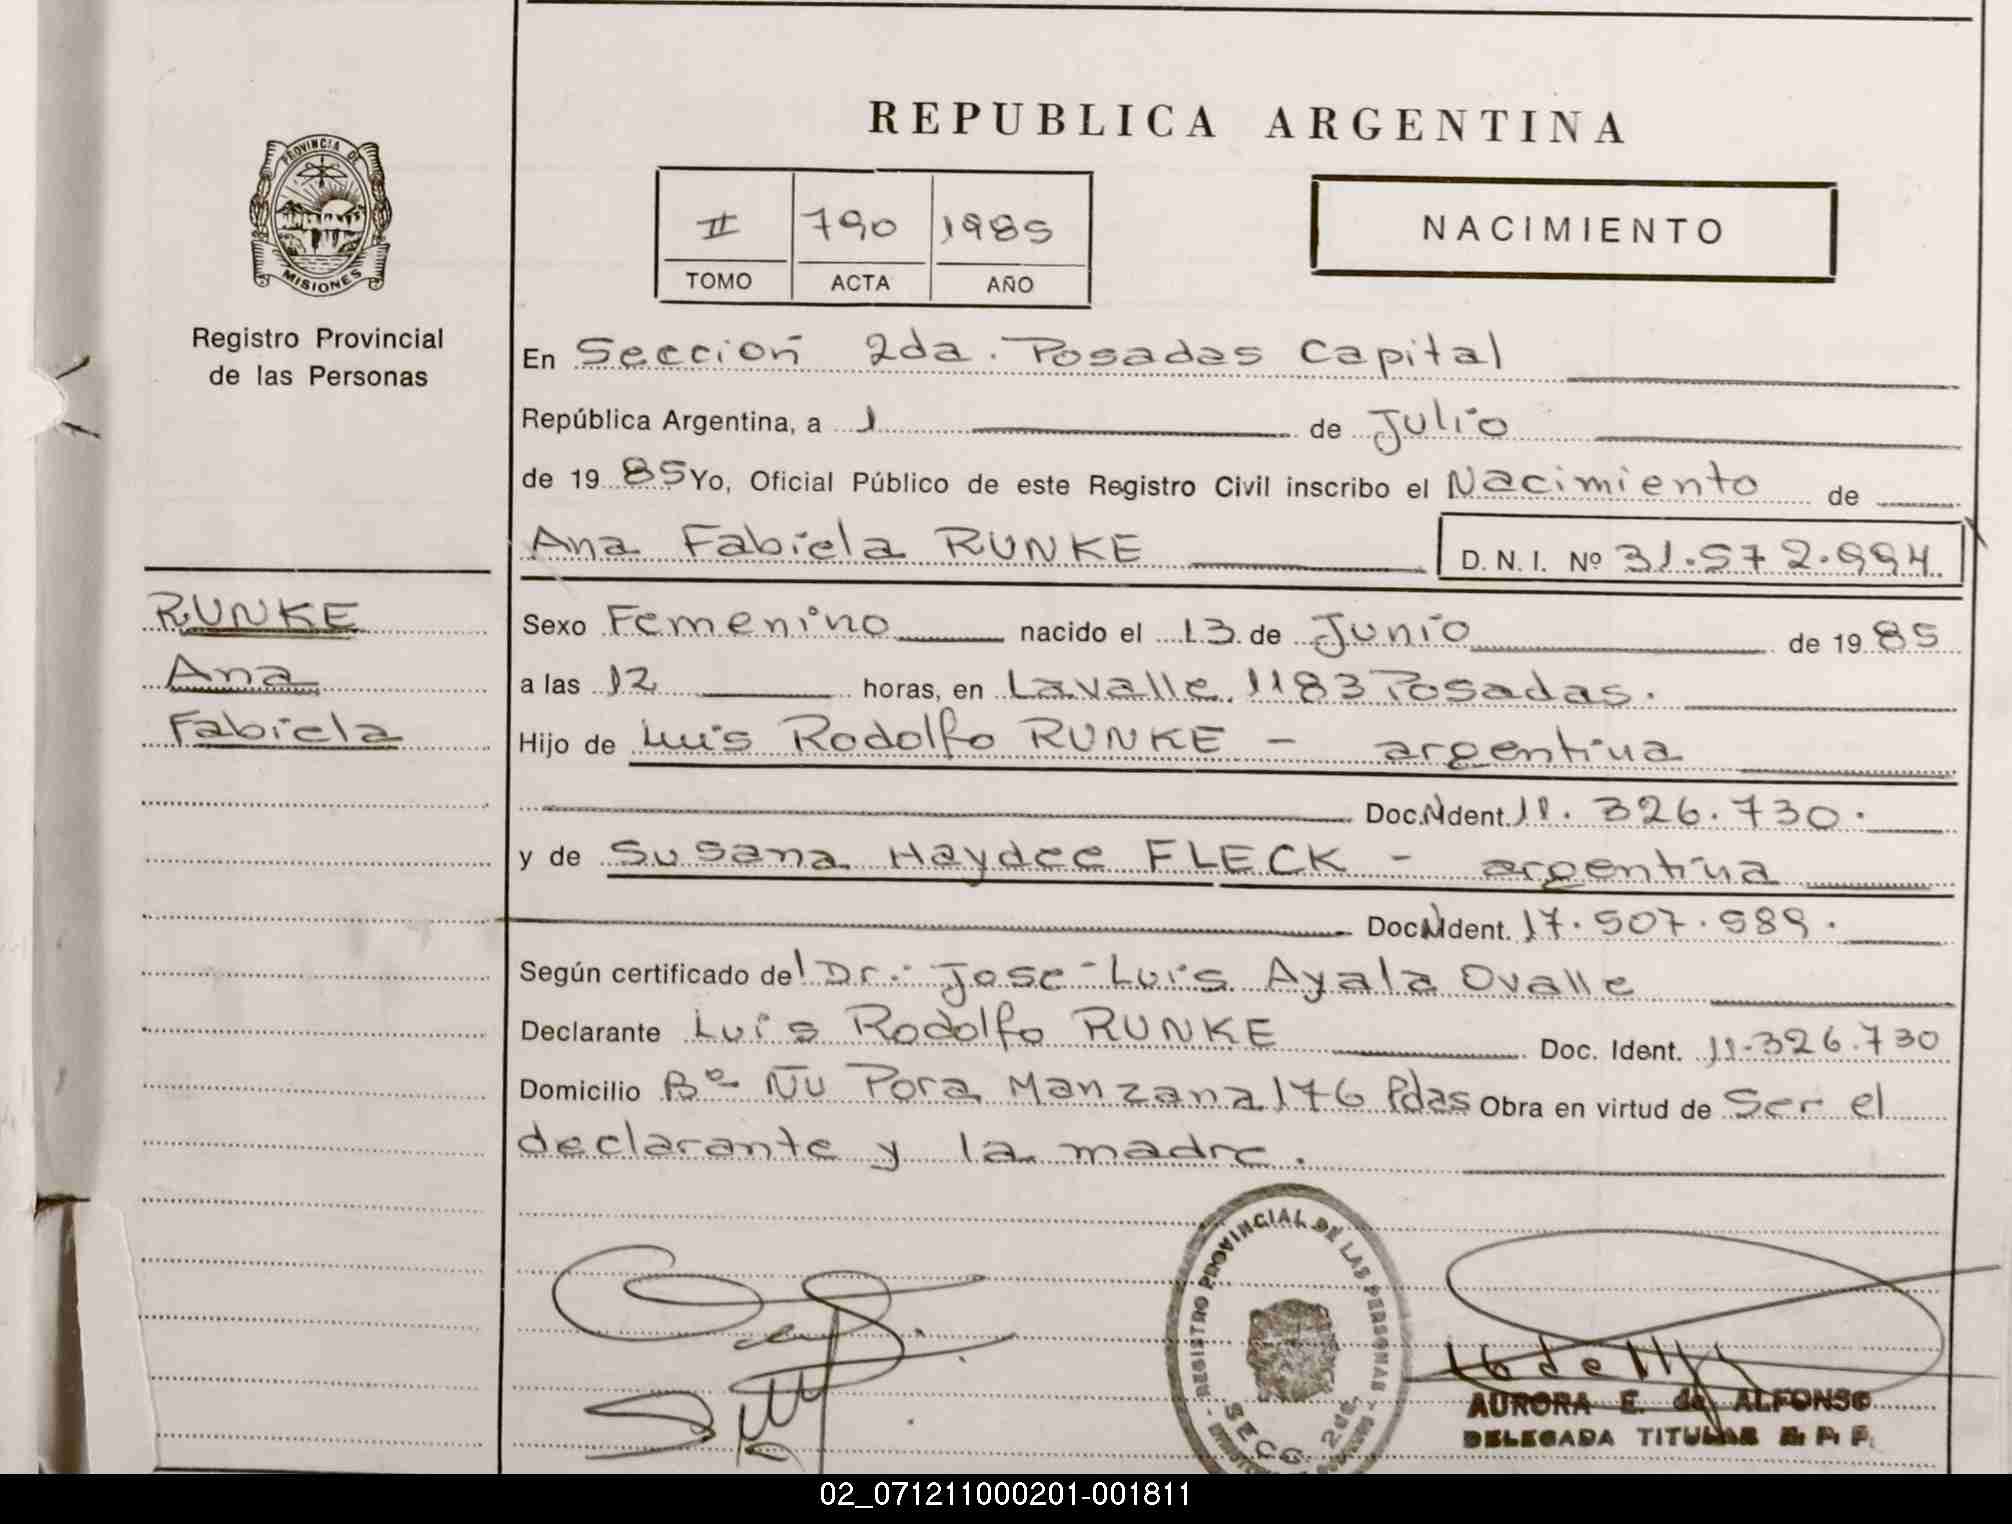 PROVINCIA DE
MISIONES
Registro Provincial
de las Personas
RUNKE
Ana
Fabiela
REPUBLICA ARGENTINA
II 790 1985
TOMO ACTA AÑO
NACIMIENTO
En Sección 2da. Posadas Capital
República Argentina, a 1 de Julio
de 1985 Yo, Oficial Público de este Registro Civil inscribo el Nacimiento de
Ana Fabiela RUNKE D. N. I. Nº 31.572.994.
Sexo Femenino nacido el 13 de Junio de 1985
a las 12 horas, en Lavalle 1183 Posadas.
Hijo de Luis Rodolfo RUNKE - argentina
Doc. Ident. 11.326.730.
y de Susana Haydee FLECK - argentina
Doc. Ident. 17.507.989.
Según certificado del Dr. Jose Luis Ayala Ovalle
Declarante Luis Rodolfo RUNKE Doc. Ident. 11.326.730
Domicilio Bº Ñu Pora Manzana 176 Pdas Obra en virtud de Ser el
declarante y la madre.
REGISTRO PROVINCIAL DE LAS PERSONAS
SECC. 2da.
AURORA E. de ALFONSO
DELEGADA TITULAR R. P. P.
02_071211000201-001811